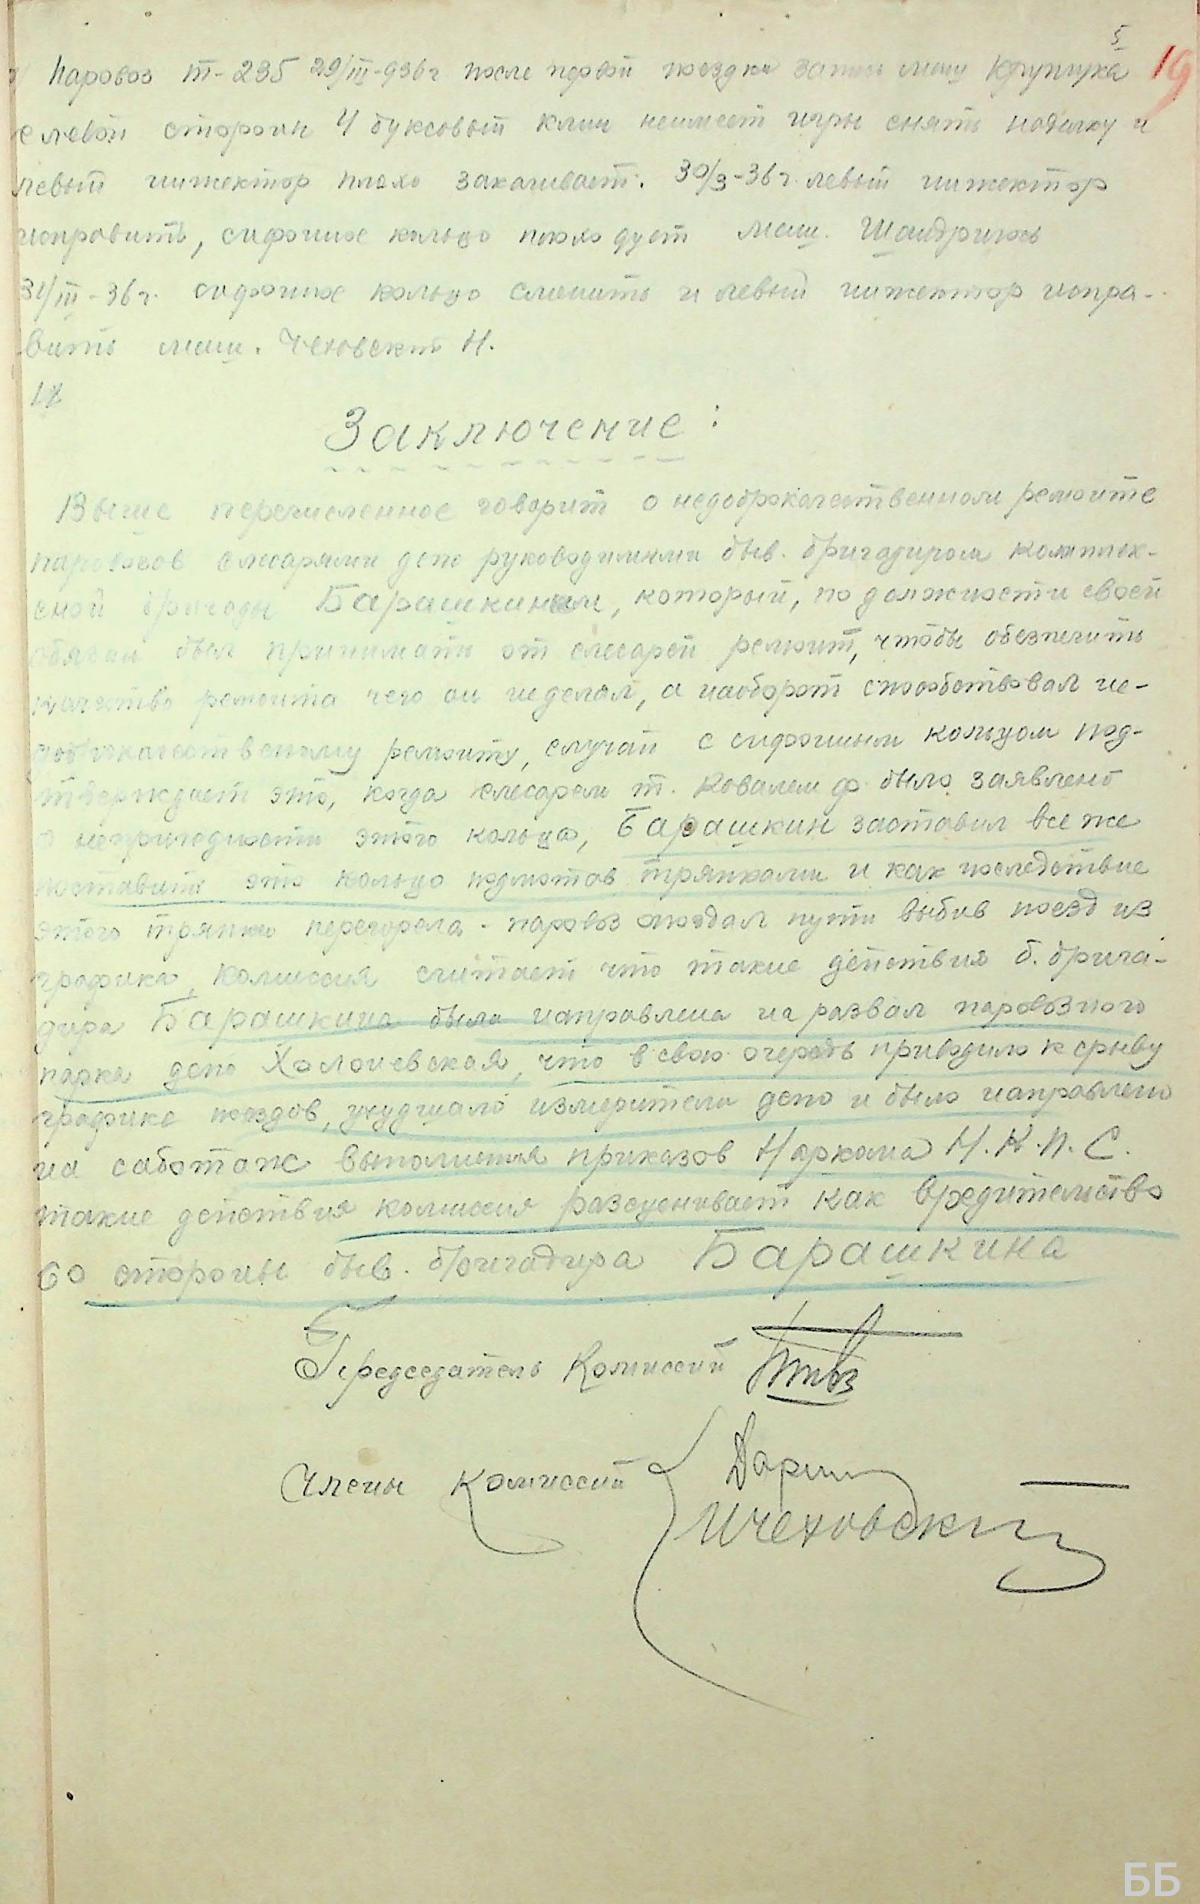 5
19
Паровоз т-235 29/III-936г после первой поездки запись маш Крупника
с левой стороны 4 буксовый клин неимеет игры снять наделку и
левый инжектор плохо закачивает. 30/3-36г. левый инжектор
исправить, сифонное кольцо плохо дует маш.
31/III-36г. сифонное кольцо сменить и левый инжектор испра-
вить маш. Чеховский Н.
Заключение:
Выше перечисленное говорит о недоброкачественном ремонте
паровозов слесарями депо руководимыми быв. бригадиром комплек-
сной бригады Барашкиным, который, по должности своей
обязан был принимать от слесарей ремонт, чтобы обезпечить
качество ремонта чего он неделал, а наоборот способствовал не-
доброкачественному ремонту, случай с сифонным кольцом под-
тверждает это, когда слесарем т. Ковалем Ф. было заявлено
о непригодности этого кольца, Барашкин заставил все же
поставить это кольцо подмотав тряпками и как последствие
этого тряпки перегорела - паровоз опоздал пути выбив поезд из
графика, комиссия считает что такие действия б. брига-
дира Барашкина были направлена на развал паровозного
парка депо Холоневская, что в свою очередь приводило к срыву
графика поездов, ухудшало измерители депо и было направлено
на саботаж выполнения приказов Наркома Н.К.П.С.
такие действия комиссия разценивает как вредительство
со стороны быв. бригадира Барашкина
Председатель Комиссий
Члены Комиссий
Чеховский
ББ